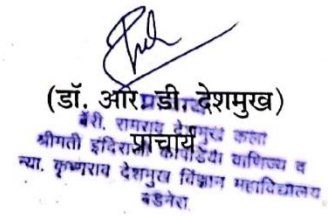 (डॉ. आर. डी. देशमुख)
प्राचार्य
बॅरी. रामराव देशमुख कला
श्रीमती इंदिराजी कापडिया वाणिज्य व
न्या. कृष्णराव देशमुख विज्ञान महाविद्यालय
बडनेरा